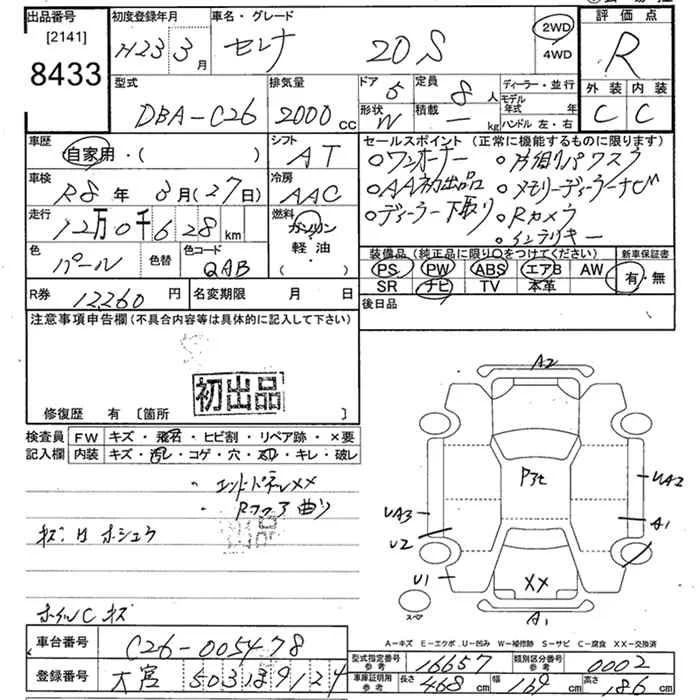 出品番号
[2141]
8433
初度登録年月
H23 3月
車名・グレード
セレナ 20S
2WD
4WD
評価点
R
外装 内装
C C
型式
DBA-C26
排気量
2000cc
ドア 5
形状 W
定員 8人
積載 ー kg
ディーラー・並行
モデル年式 年
ハンドル 左・右
車歴
自家用・( )
シフト
AT
車検
R8年 3月(27日)
冷房
AAC
走行
12万0千628km
燃料
ガソリン
軽・油
( )
色
パール
色替
色コード
QAB
R券 12260円
名変期限 月 日
セールスポイント (正常に機能するものに限ります)
○ワンオーナー
○AA初出品
○ディーラー下取り
○片側パワスラ
○メモリーディーラーナビ
○Rカメラ
○インテリキー
装備品(純正品に限り○をつけてください)
PS PW ABS エアB AW
SR ナビ TV 本革
新車保証書
有・無
後日品
注意事項申告欄(不具合内容等は具体的に記入して下さい)
初出品
修復歴 有 [箇所 ]
検査員記入欄
FW キズ・飛石・ヒビ割・リペア跡・×要
内装 キズ・汚レ・コゲ・穴・スリ・キレ・破レ
・エンドパネルXX
・Rフロア曲り
キズ・凹 ホシュウ
ホイルC キズ
A2
P3t
UA2
UA3
A1
U2
U1
XX
A1
スペア
A-キズ E-エクボ U-凹み W-補修跡 S-サビ C-腐食 XX-交換済
車台番号 C26-005478
登録番号 大宮 503 ほ 9124
型式指定番号 参考 16657
類別区分番号 参考 0002
車庫証明用 参考 長さ 468cm 幅 169cm 高さ 186cm